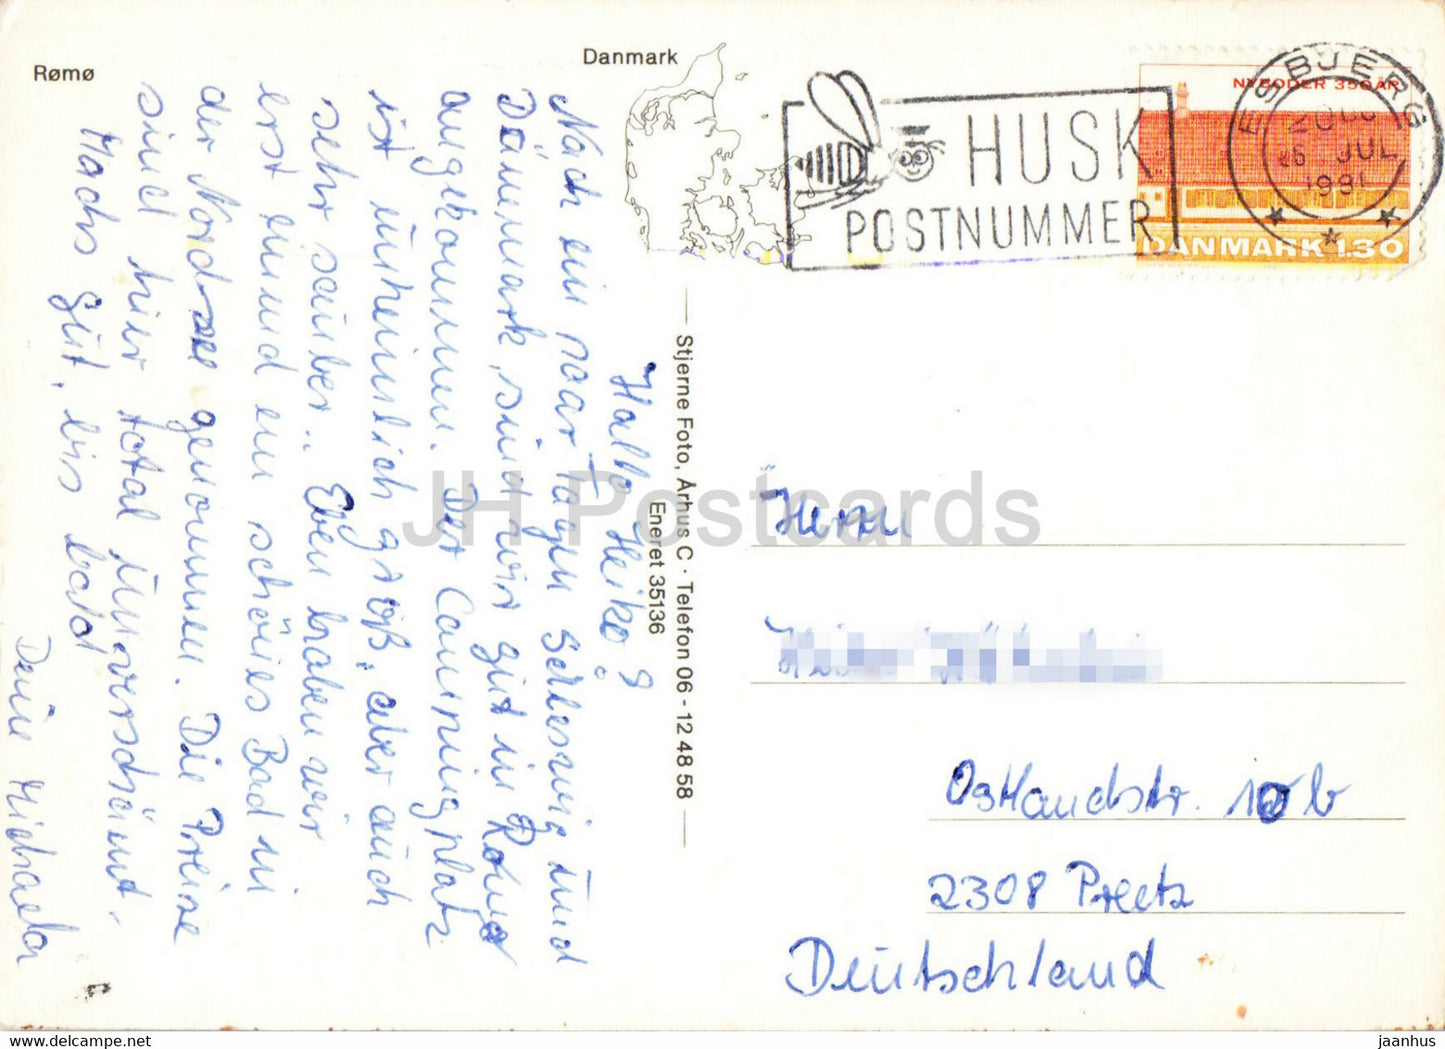 Rømø
Danmark
HUSK
POSTNUMMER
NYBODER 350 ÅR
DANMARK 130
ESBJERG
JUL
1981
Stjerne Foto, Århus C · Telefon 06 - 12 48 58
Eneret 35136
Hallo Heiko!
Nach ein paar Tagen Schleswig und
Dänemark, sind wir gut in Römö
angekommen. Der Campingplatz
ist unheimlich groß, aber auch
sehr sauber.. Eben haben wir
erst einmal ein schönes Bad in
der Nordsee genommen. Die Preise
sind hier total unverschämt.
Machs gut, bis bald
Deine Michaela
Herrn
Ostlandstr. 10b
2308 Preetz
Deutschland
JH Postcards
www.delcampe.net
jaanhus